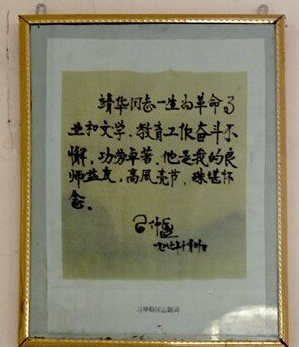 靖华同志一生为革命事
业和文学、教育工作奋斗不
懈，功劳卓著，他是我的良
师益友，高风亮节，殊堪怀
念。
习仲勋
习仲勋同志题词